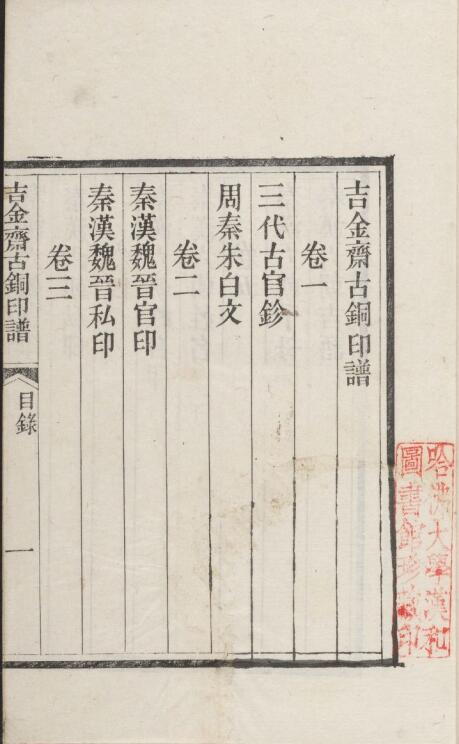 吉金齋古銅印譜
卷一
三代古官鉨
周秦朱白文
卷二
秦漢魏晉官印
秦漢魏晉私印
卷三
吉金齋古銅印譜
目錄
一
哈佛大學漢和
圖書館珍藏印